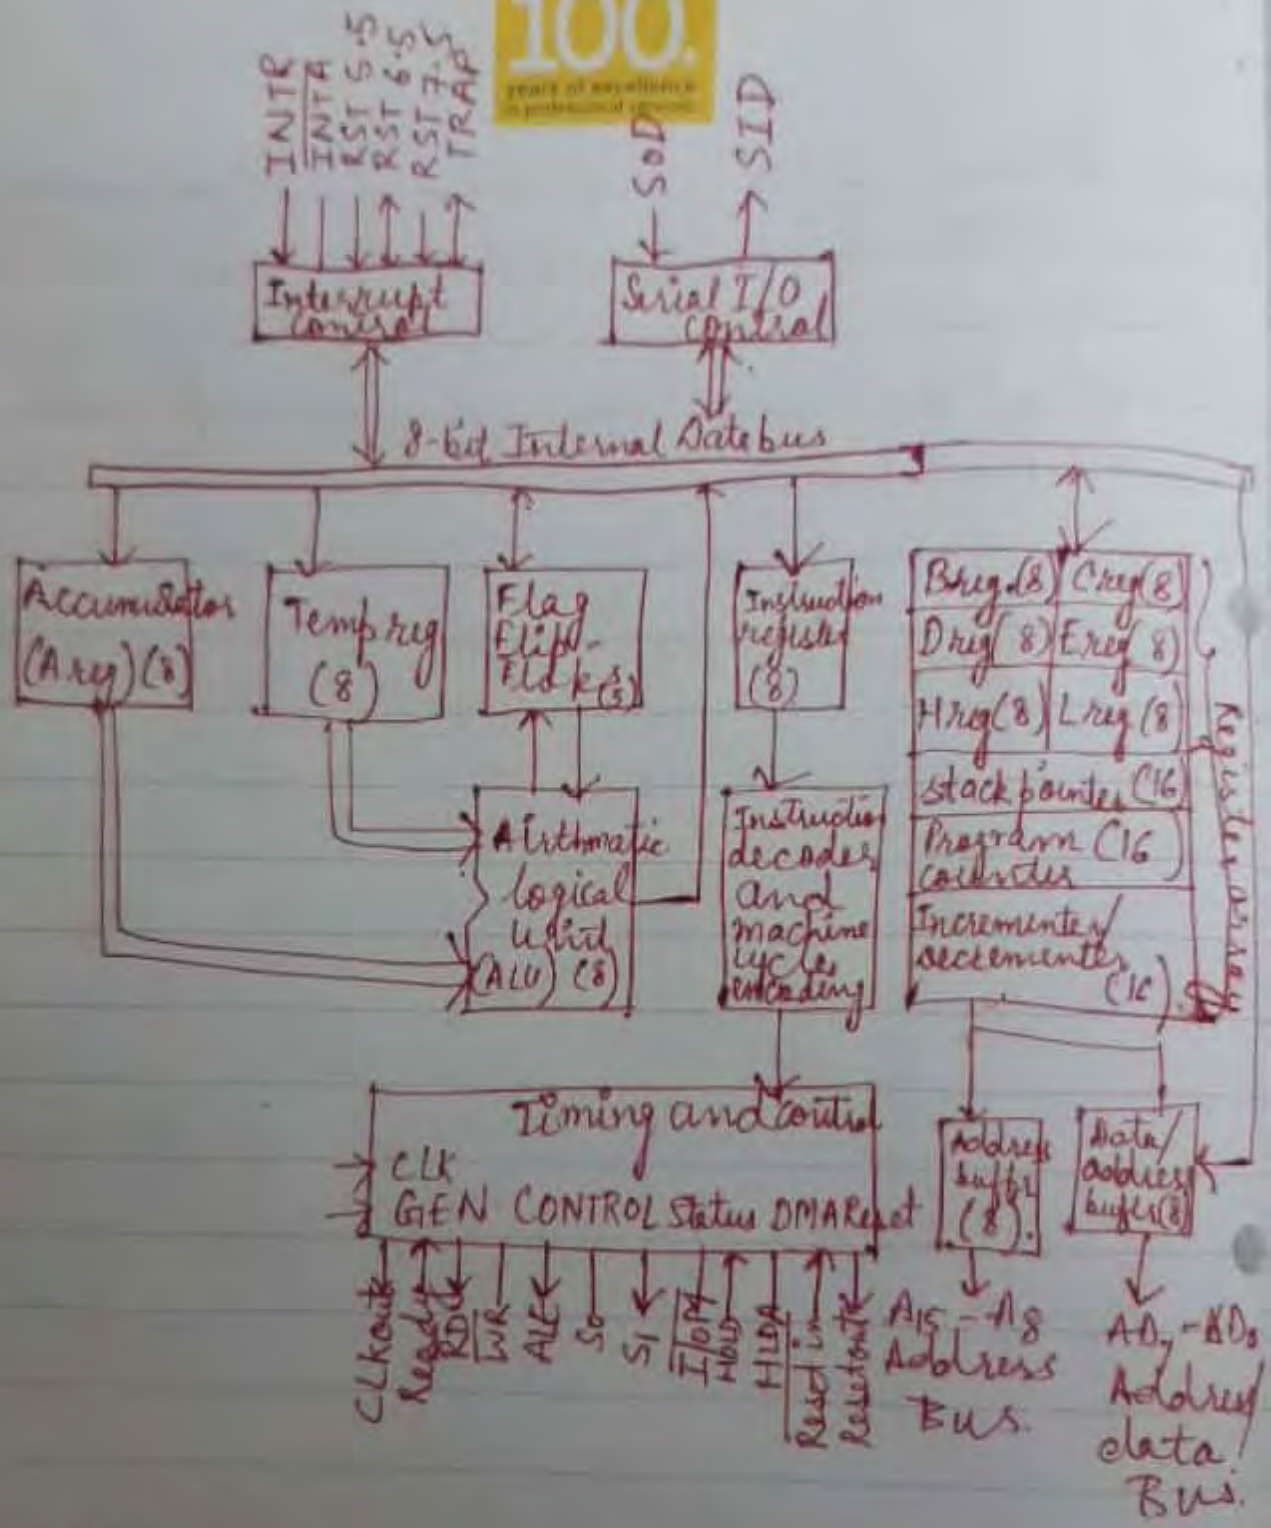 100.
years of excellence
in professional services
INTR
INTA
RST 5.5
RST 6.5
RST 7.5
TRAP
SOD
SID
Interrupt
control
Serial I/O
control
8-bit Internal Datebus
Accumulator
(A reg) (8)
Temp reg
(8)
Flag
Flip-
Flops (5)
Instruction
register
(8)
B reg. (8)
C reg (8)
D reg (8)
E reg (8)
H reg (8)
L reg (8)
stack pointer (16)
Programm (16)
counter
Incrementer/
decrementer
(16)
Register array
Airthmatic
logical
Unit
(ALU) (8)
Instruction
decoder
and
machine
cycle
encoding
Timing and control
CLK
GEN CONTROL Status DMA Reset
CLKout
Ready
RD
WR
ALE
S0
S1
I/OM
HOLD
HLDA
Reset out
Address
buffer
(8).
Data/
address
buffer (8)
A15 - A8
Address
Bus.
Address/
data
Bus.